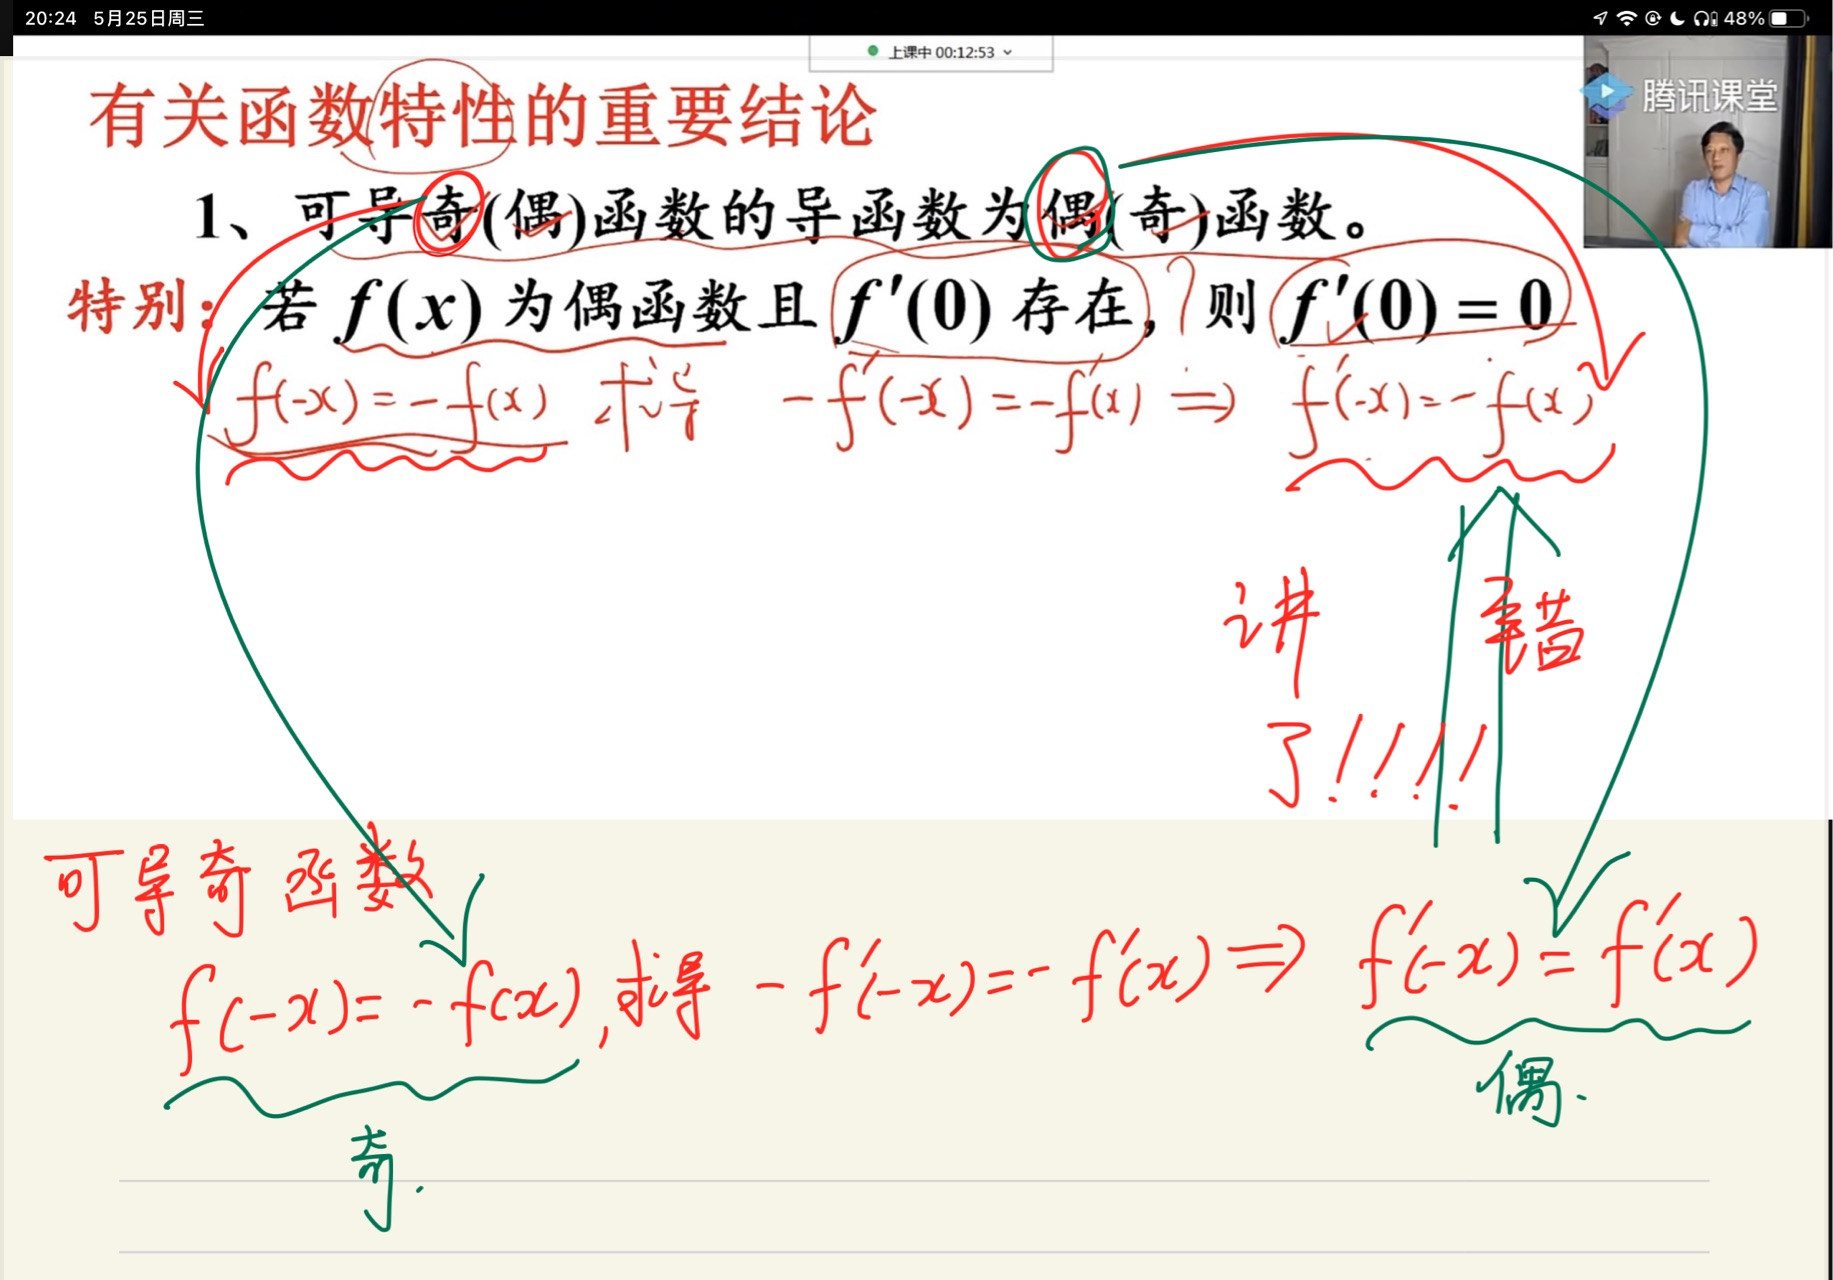 20:24 5月25日周三
48%
上课中 00:12:53
腾讯课堂
有关函数特性的重要结论
1、可导奇(偶)函数的导函数为偶(奇)函数。
特别: 若 f(x) 为偶函数且 f′(0) 存在, ? 则 f′(0) = 0
f(-x) = -f(x) 求导 -f′(-x) = -f′(x) ⇒ f′(-x) = -f(x)
讲 错
了!!!!
可导奇函数
f(-x) = -f(x), 求导 -f′(-x) = -f′(x) ⇒ f′(-x) = f′(x)
奇. 偶.